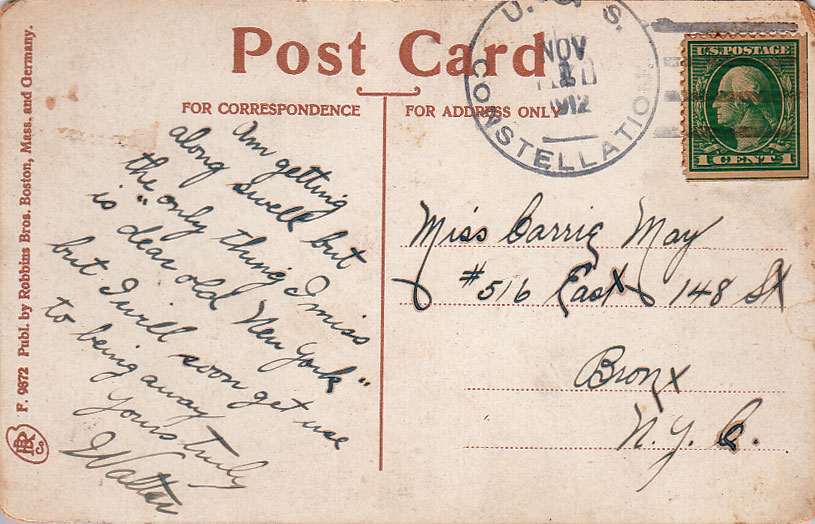 Post Card
FOR CORRESPONDENCE
FOR ADDRESS ONLY
U. S. S.
NOV
1
1912
CONSTELLATION
U.S. POSTAGE
1 CENT 1
Am getting
along swell but
the "only thing I miss
is dear old New York"
but I will soon get use
to being away
Yours truly
Walter
Miss Carrie May
#516 East 148 St
Bronx
N.Y.C.
F. 9872 Publ. by Robbins Bros. Boston, Mass. and Germany.